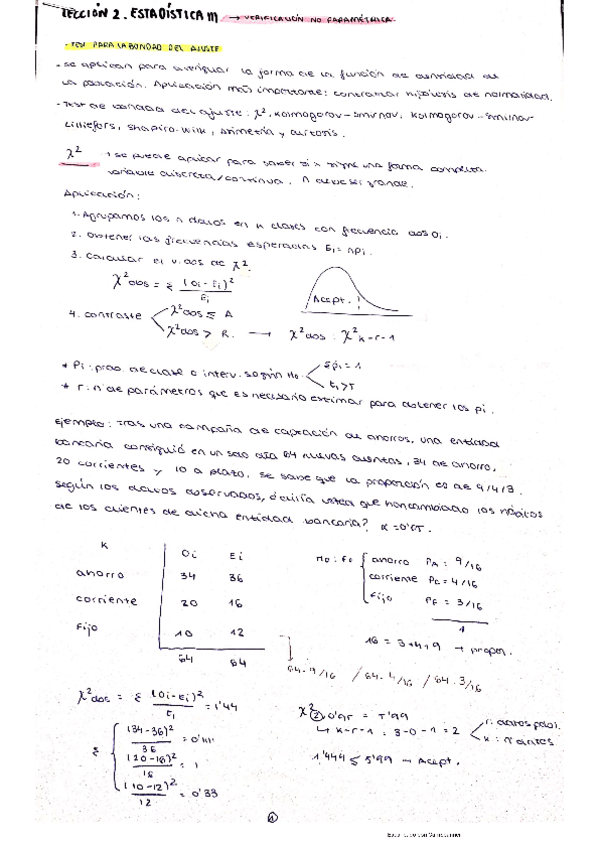 LECCIÓN 2. ESTADÍSTICA III → VERIFICACIÓN NO PARAMÉTRICA.
- TEST PARA LA BONDAD DEL AJUSTE
- Se aplican para averiguar la forma de la función de cuantidad de
la población. Aplicación más importante: contrastar hipótesis de normalidad.
- Test de bondad del ajuste: χ², Kolmogorov-Smirnov, Kolmogorov-Smirnov
Lilliefors, Shapiro-Wilk, asimetría y curtosis.
χ² → se puede aplicar para saber si x sigue una forma completa.
variable discreta/continua. n debe ser grande.
Aplicación:
1. Agrupamos los n datos en k clases con frecuencia abs Oi.
2. Obtener las frecuencias esperadas Ei = npi.
3. Calcular el v. obs de χ².
χ²obs = Σ (Oi-Ei)² / Ei
Acept.
4. contraste χ²obs ≤ A
χ²obs > R. → χ²obs : χ² k-r-1
* Pi: prob. de clase o interv. según Ho Σpi = 1
Ei > 5
* r: nº de parámetros que es necesario estimar para obtener los pi.
Ejemplo: Tras una campaña de captación de ahorros, una entidad
bancaria consiguió en un solo día 64 nuevas cuentas, 34 de ahorro,
20 corrientes y 10 a plazo, se sabe que la proporción es de 9/4/3.
según los datos observados, ¿diría usted que han cambiado los hábitos
de los clientes de dicha entidad bancaria? α = 0'05.
K Oi Ei
ahorro 34 36
corriente 20 16
Fijo 10 12
64 64
Ho: Fo ahorro PA = 9/16
corriente PC = 4/16
Fijo PF = 3/16
1
16 = 3+4+9 → propor.
64·9/16 / 64·4/16 / 64·3/16
χ²obs = Σ (Oi-Ei)² / Ei = 1'44
Σ (34-36)² / 36 = 0'111
(20-16)² / 16 = 1
(10-12)² / 12 = 0'33
χ² 2, 0'95 = 5'99
↳ k-r-1 = 3-0-1 = 2
1'444 ≤ 5'99 → Acept.
1